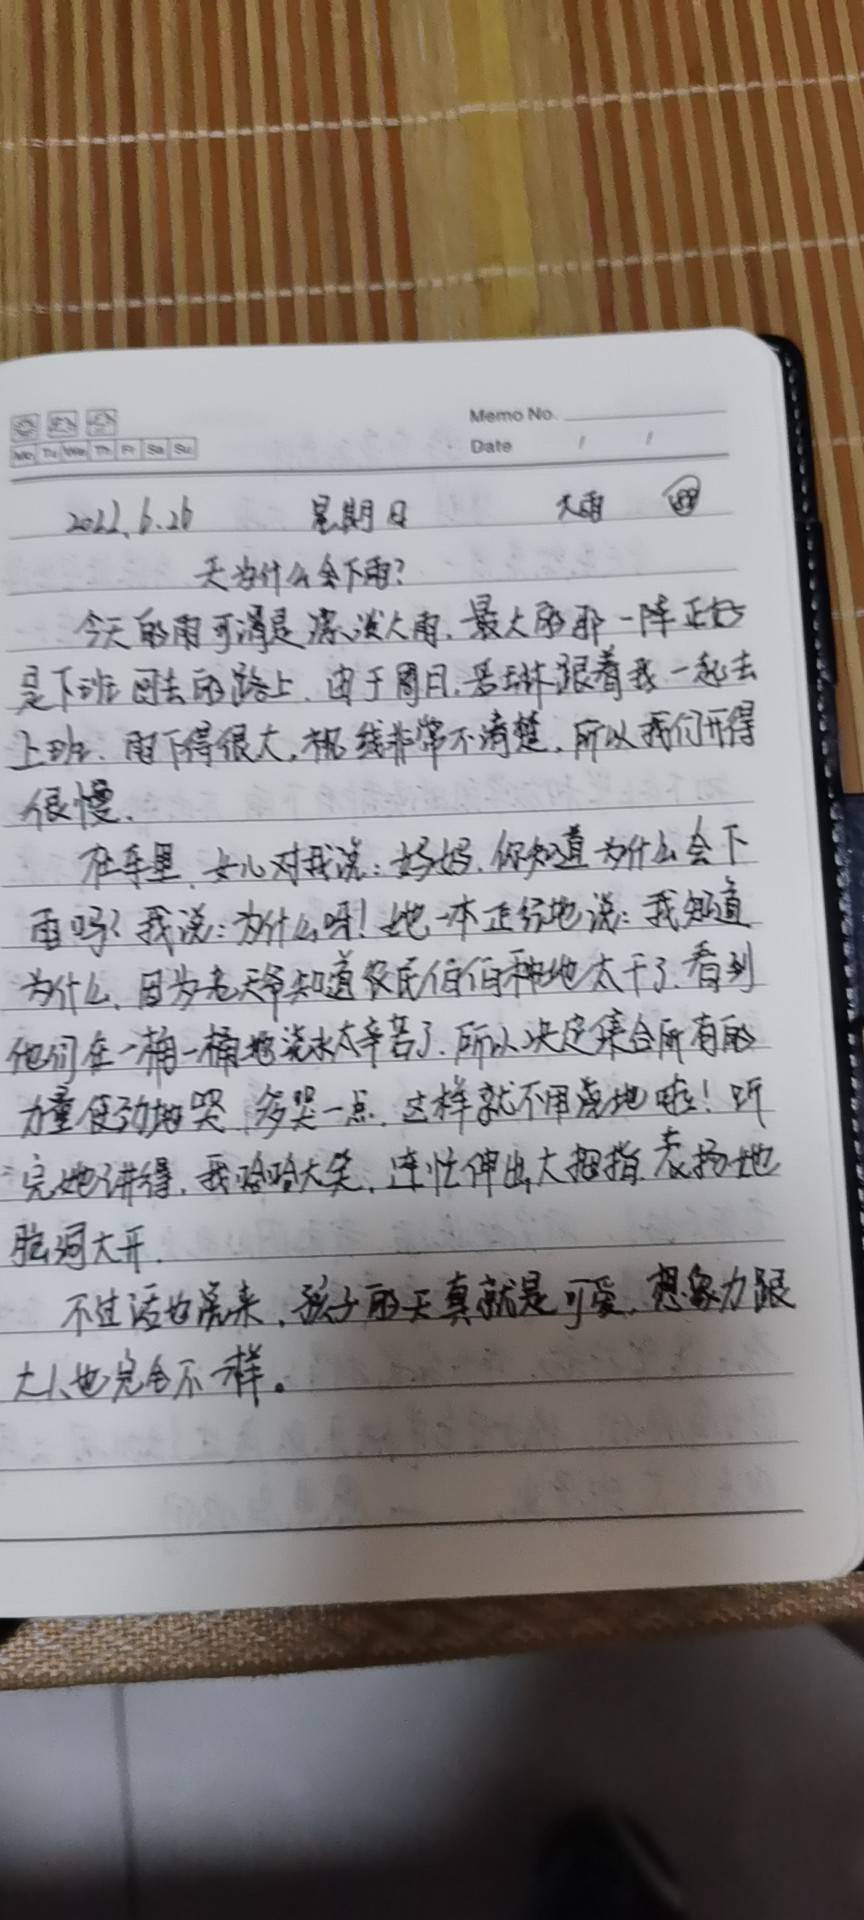 Memo No.
Mo Tu We Th Fr Sa Su
Date / /
2022.6.26 星期日 大雨
天为什么会下雨?
今天的雨可谓是滂沱大雨,最大的那一阵正好
是下班回去的路上,由于周日,若琳跟着我一起去
上班,雨下得很大,视线非常不清楚,所以我们开得
很慢,
在车里,女儿对我说:妈妈,你知道为什么会下
雨吗?我说:为什么呀!她一本正经地说:我知道
为什么,因为老天爷知道农民伯伯种地太干了,看到
他们在一桶一桶地浇水太辛苦了,所以决定集合所有的
力量使劲地哭,多哭一点,这样就不用浇地啦!听
完她讲得,我哈哈大笑,连忙伸出大拇指,表扬她
脑洞大开,
不过话也说来,孩子的天真就是可爱,想象力跟
大人也完全不一样。